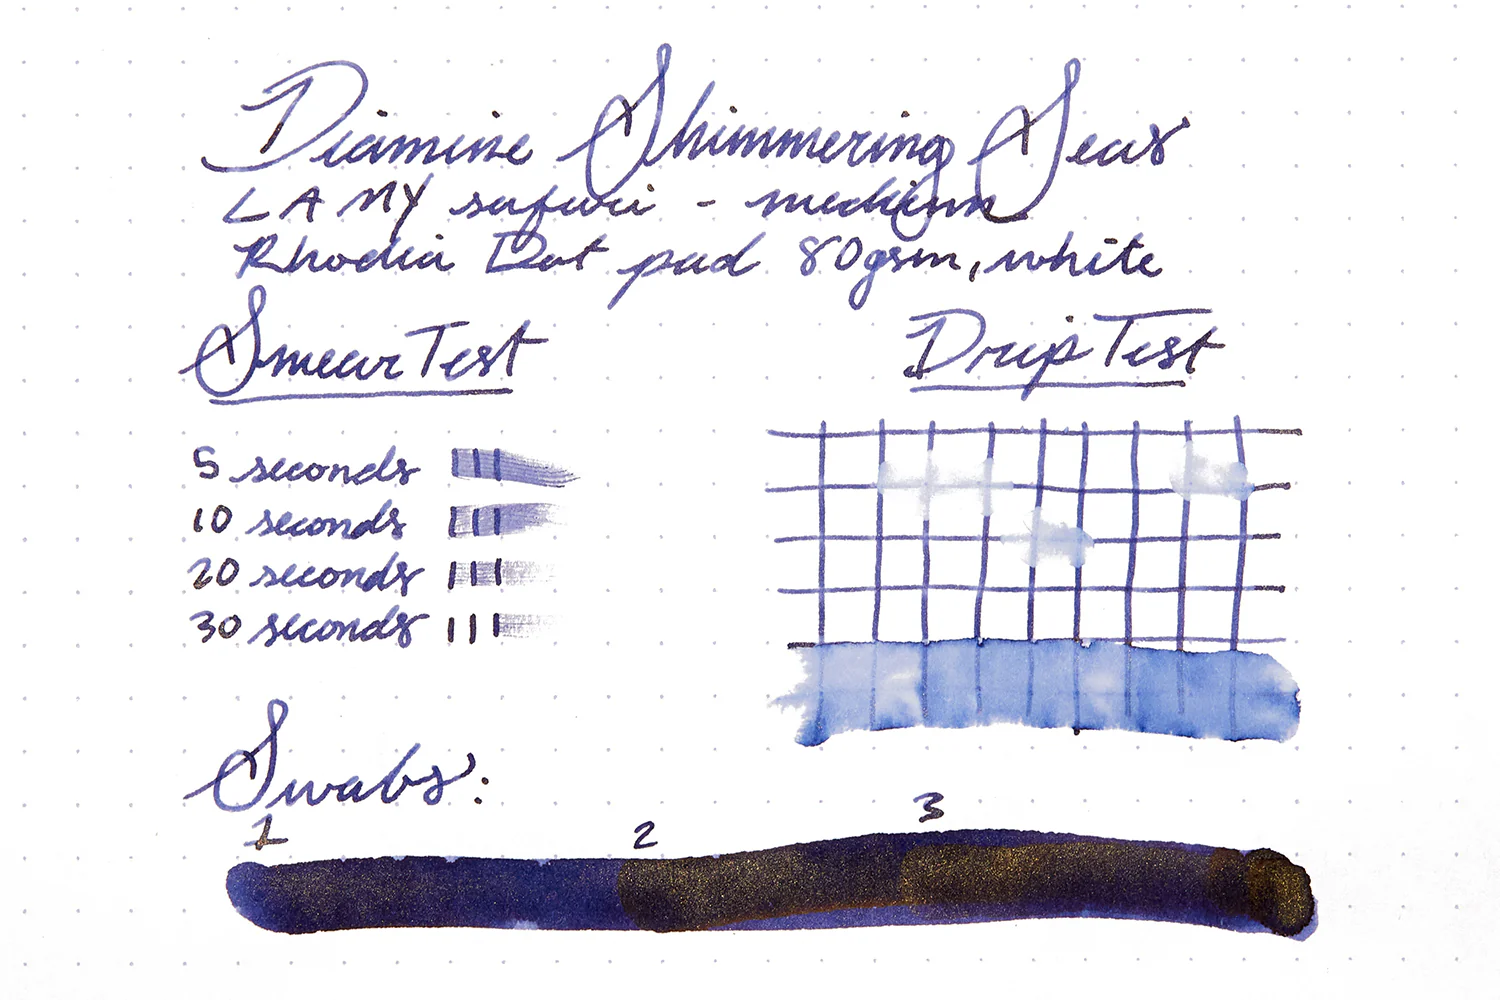 Diamine Shimmering Seas
LAMY safari - medium
Rhodia Dot pad 80gsm, white
Smear Test
Drip Test
5 seconds
10 seconds
20 seconds
30 seconds
Swabs:
1 2 3